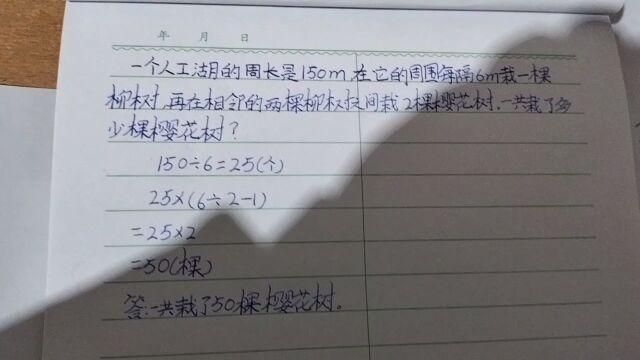 年 月 日
一个人工湖的周长是150m,在它的周围每隔6m栽一棵
柳树,再在相邻的两棵柳树之间栽2棵樱花树,一共栽了多
少棵樱花树?
150÷6=25(个)
25×(6÷2-1)
=25×2
=50(棵)
答:一共栽了50棵樱花树。